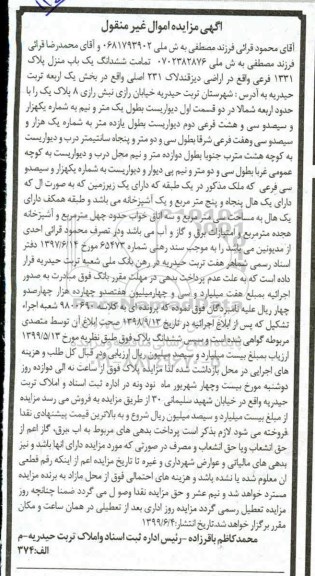 آگهی مزایده اموال غیر منقول
آقای محمود قرائی فرزند مصطفی به ش ملی ۰۶۸۱۷۹۳۹۰۲ و آقای محمدرضا قرائی
فرزند مصطفی به ش ملی ۰۷۰۲۳۸۲۸۷۶ تمامت ششدانگ یک باب منزل پلاک
۱۳۳۱ فرعی واقع در اراضی دیزقندلاک ۲۳۱ اصلی واقع در بخش یک اربعه تربت
حیدریه به آدرس : شهرستان تربت حیدریه خیابان رازی نبش رازی ۸ پلاک یک را با
حدود اربعه شمالا در دو قسمت اول دیواریست بطول یک متر و نیم به شماره یکهزار
و سیصدو سی و هشت فرعی دوم دیواریست بطول یازده متر به شماره یک هزار و
سیصدو سی وهفت فرعی شرقا بطول سی و دو متر و پنجاه سانتیمتر درب و دیواریست
به کوچه هشت مترب جنوبا بطول دوازده متر و نیم محل درب و دیواریست به کوچه
عمومی غربا بطول سی و دو متر و نیم پی دیوار و دیواریست به شماره یکهزار و سیصدو
سی فرعی که ملک مذکور در یک طبقه که دارای یک زیرزمین که به صورت ال که
دارای یک هال پنجاه و پنج متر مربع و یک آشپزخانه می باشد و طبقه همکف دارای
یک هال به مساحت سی متر مربع و سه اتاق خواب حدود چهل مترمربع و آشپزخانه
هجده مترمربع و امتیازات برق و گاز و آب می باشد ودر تصرف محمود قرائی احدی
از مدیونین می باشد را به موجب سند رهنی شماره ۶۵۴۷۳ مورخ ۱۳۹۷/۶/۱۴ دفتر
اسناد رسمی شماره هفت تربت حیدریه در رهن بانک ملی شعبه تربت حیدریه قرار
داده است که به علت عدم پرداخت بدهی در مهلت مقرر بانک فوق مبادرت به صدور
اجرائیه بمبلغ هفت میلیارد وسی و چهارمیلیون هفتصدو چهارده هزار چهارصدو
چهار ریال علیه نامبردگان فوق نموده که پرونده ای به کلاسه ۹۸۰۰۶۹۰ شعبه اجراء
تشکیل که پس از ابلاغ اجرائیه در تاریخ ۱۳۹۸/۹/۱۳ صحت ابلاغ آن توسط متصدی
مربوطه گواهی شده است و سپس ششدانگ پلاک فوق طبق نظریه مورخ ۱۳۹۹/۵/۱۳
ارزیاب بمبلغ بیست میلیارد و سیصد میلیون ریال ارزیابی ودر قبال کل طلب و هزینه
های اجرایی در محل بازداشت شده لذا مزایده پلاک فوق از ساعت نه الی دوازده روز
دوشنبه مورخ بیست وچهار شهریور ماه نود ونه در اداره ثبت اسناد و املاک تربت
حیدریه واقع در خیابان شهید سلیمانی ۳۰ از طریق مزایده به فروش می رسد مزایده
از مبلغ بیست میلیارد و سیصد میلیون ریال شروع و به بالاترین قیمت پیشنهادی نقدا
فروخته می شود لازم بذکر است پرداخت بدهی های مربوط به اب ،برق، گاز اعم از
حق انشعاب ویا حق انشعاب و مصرف در صورتی که مورد مزایده دارای انها باشد و نیز
بدهی های مالیاتی و عوارض شهرداری و غیره تا تاریخ مزایده اعم از اینکه رقم قطعی
ان معلوم شده یا نشده باشد و هزینه های احتمالی فوق از محل مازاد به برنده مزایده
مسترد خواهد شد و نیم عشر و حق مزایده نقدا وصول می گردد ضمنا چنانچه روز
مزایده تعطیل رسمی گردد مزایده روز اداری بعد از تعطیلی در همان ساعت و مکان
مقرر برگزار خواهد شد.تاریخ انتشار:۱۳۹۹/۶/۴
محمدکاظم باقرزاده -رئیس اداره ثبت اسناد واملاک تربت حیدریه-م
الف:۳۷۴